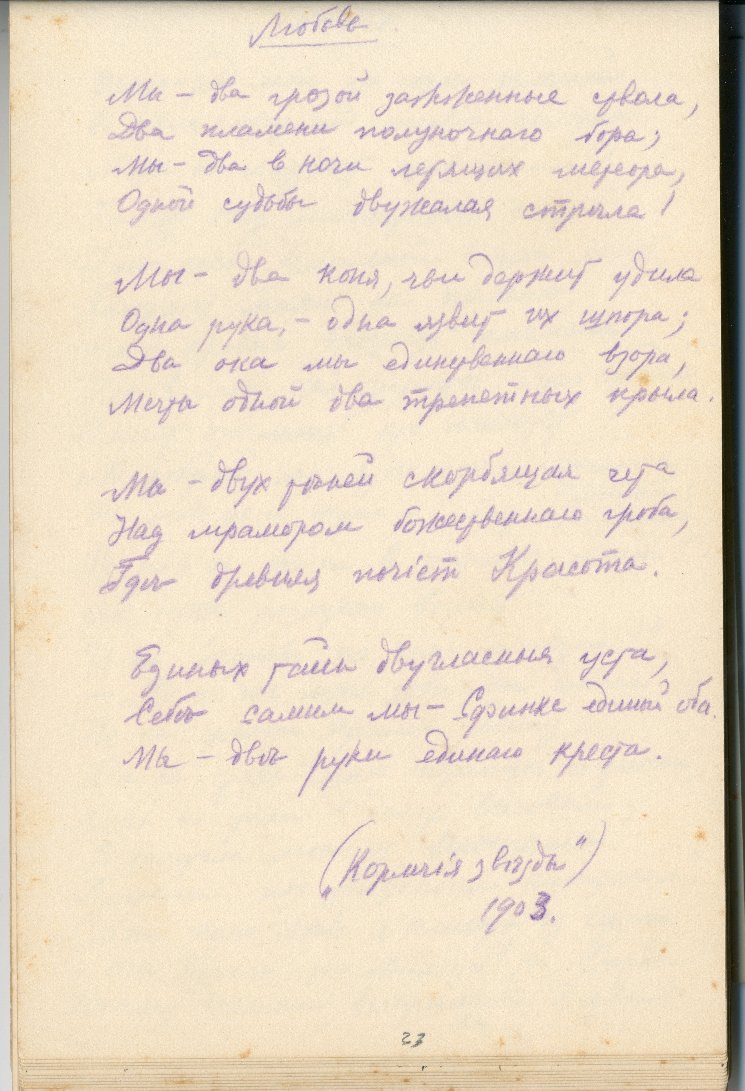 Любовь
Мы – два грозой зажженные ствола,
Два пламени полуночнаго бора;
Мы – два в ночи летящих метеора,
Одной судьбы двужалая стрѣла!
Мы – два коня, чьи держит удила
Одна рука, – одна язвит их шпора;
Два ока мы единственнаго взора,
Мечты одной два трепетных крыла.
Мы – двух тѣней скорбящая чета
Над мрамором божественнаго гроба,
Гдѣ древняя почіет Красота.
Единых тайн двугласныя уста,
Себѣ самим мы – Сфинкс единый оба.
Мы – двѣ руки единаго креста.
(„Кормчія звѣзды")
1903.
23